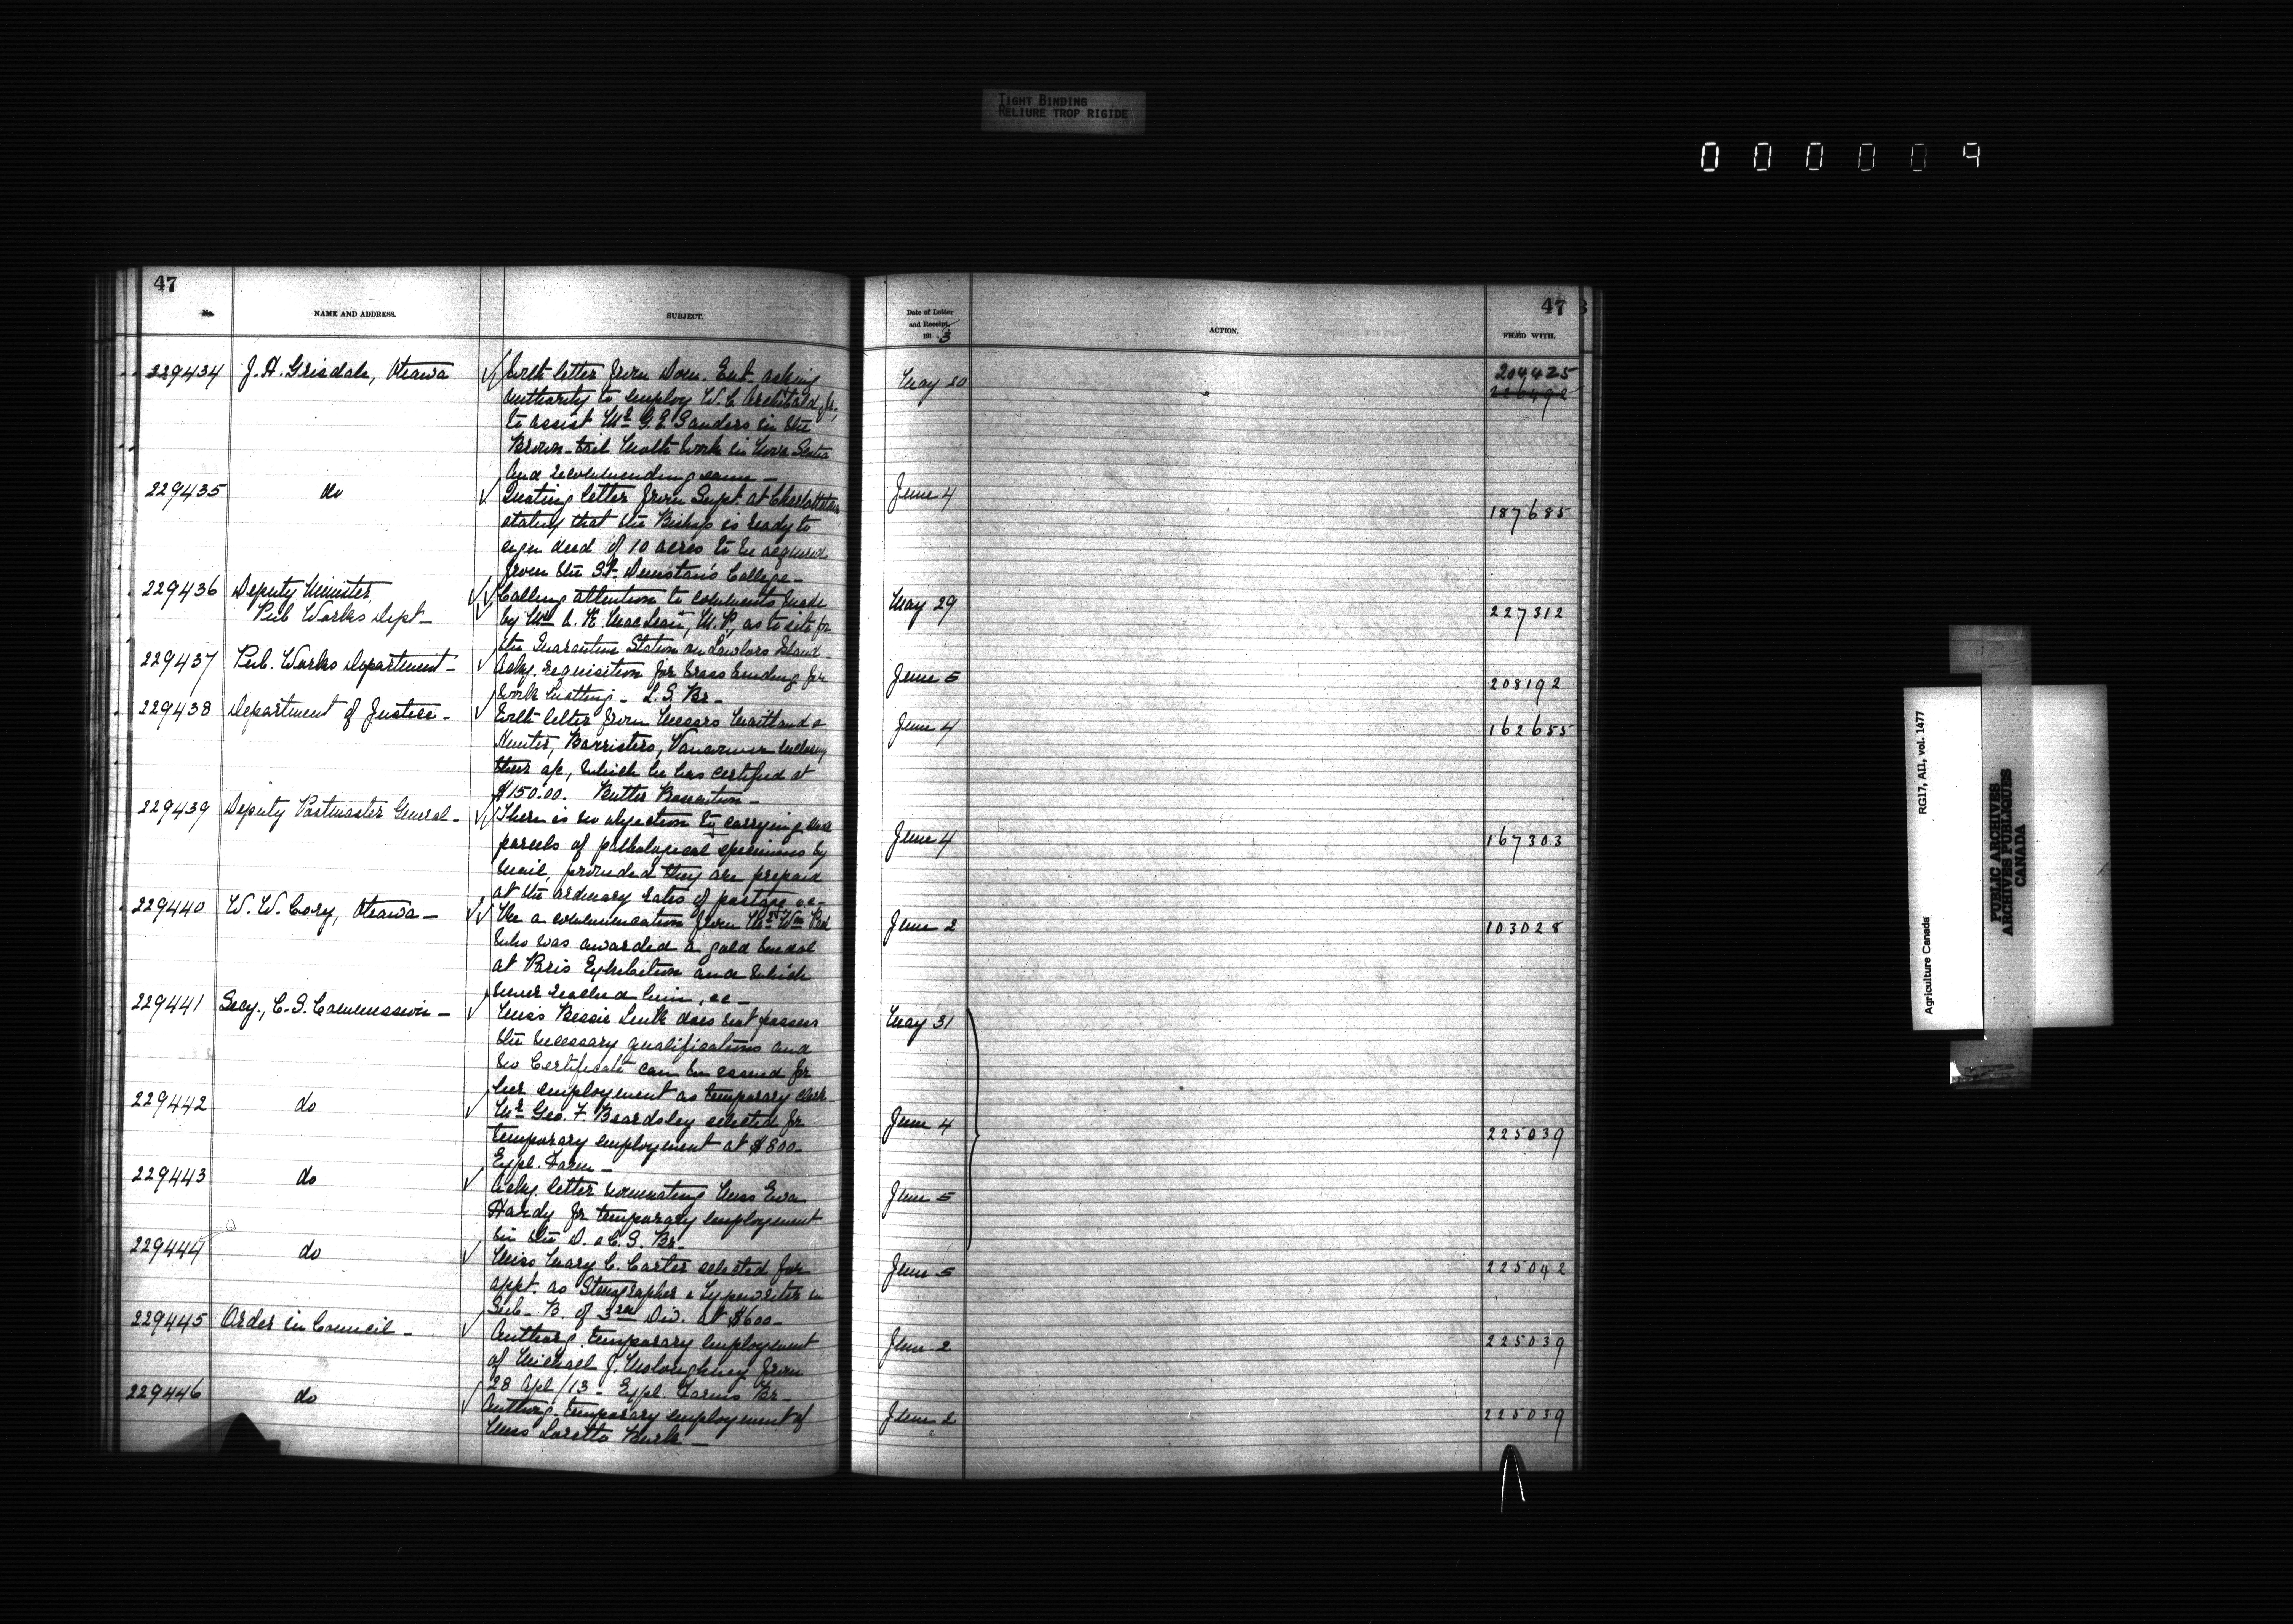 TIGHT BINDING
RELIURE TROP RIGIDE
000009
47
No.
NAME AND ADDRESS.
SUBJECT.
229434
J. H. Grisdale, Ottawa
With letter from Dom. Ent. asking
authority to employ W. C. Archibald Jr.,
to assist Mr. G. E. Sanders in the
Brown-tail Moth work in Nova Scotia
and recommending same -
229435
do
Quoting letter from Supt. at Charlottetown
stating that the Bishop is ready to
sign deed of 10 acres to be acquired
from the St. Dunstan's College -
229436
Deputy Minister,
Pub Works Dept -
Calling attention to comments made
by Mr. A. K. MacLean, M.P., as to site for
the Quarantine Station on Lawlors Island -
229437
Pub. Works Department -
Ackg. requisition for brass binding for
cork matting - L. S. Br -
229438
Department of Justice -
With letter from Messrs Maitland &
Hunter, Barristers, Vancouver enclosing
their a/c, which he has certified at
$150.00. Butter Prosecution -
229439
Deputy Postmaster General -
There is no objection to carrying
parcels of pathological specimens by
mail, provided they are prepaid
at the ordinary rates of postage &c -
229440
W. W. Cory, Ottawa -
Re a communication from Mr. Wm
who was awarded a gold medal
at Paris Exhibition and which
never reached him, &c -
229441
Secy., C. S. Commission -
Miss Bessie Lusk does not possess
the necessary qualifications and
no Certificate can be issued for
her employment as temporary clerk -
229442
do
Mr. Geo. F. Beardsley selected for
temporary employment at $800 -
Expl. Farm -
229443
do
Ackg. letter nominating Miss Eva
Hardy for temporary employment
in the D. & C. S. Br -
229444
do
Miss Mary C. Carter selected for
appt. as Stenographer & Typewriter in
Sub - B. of 3rd Div. at $600 -
229445
Order in Council -
Authorg. temporary employment
of Michael J. Moloughney from
28 Apl /13 - Expl. Farms Br -
229446
do
Authorg. temporary employment of
Miss Loretta Burke -
47
Date of Letter
and Receipt,
191 3
ACTION.
FILED WITH.
May 20
204425
226492
June 4
187685
May 29
227312
June 5
208192
June 4
162655
June 4
167303
June 2
103028
May 31
June 4
225039
June 5
June 5
225042
June 2
225039
June 2
225039
Agriculture Canada
RG17, AII, vol. 1477
PUBLIC ARCHIVES
ARCHIVES PUBLIQUES
CANADA